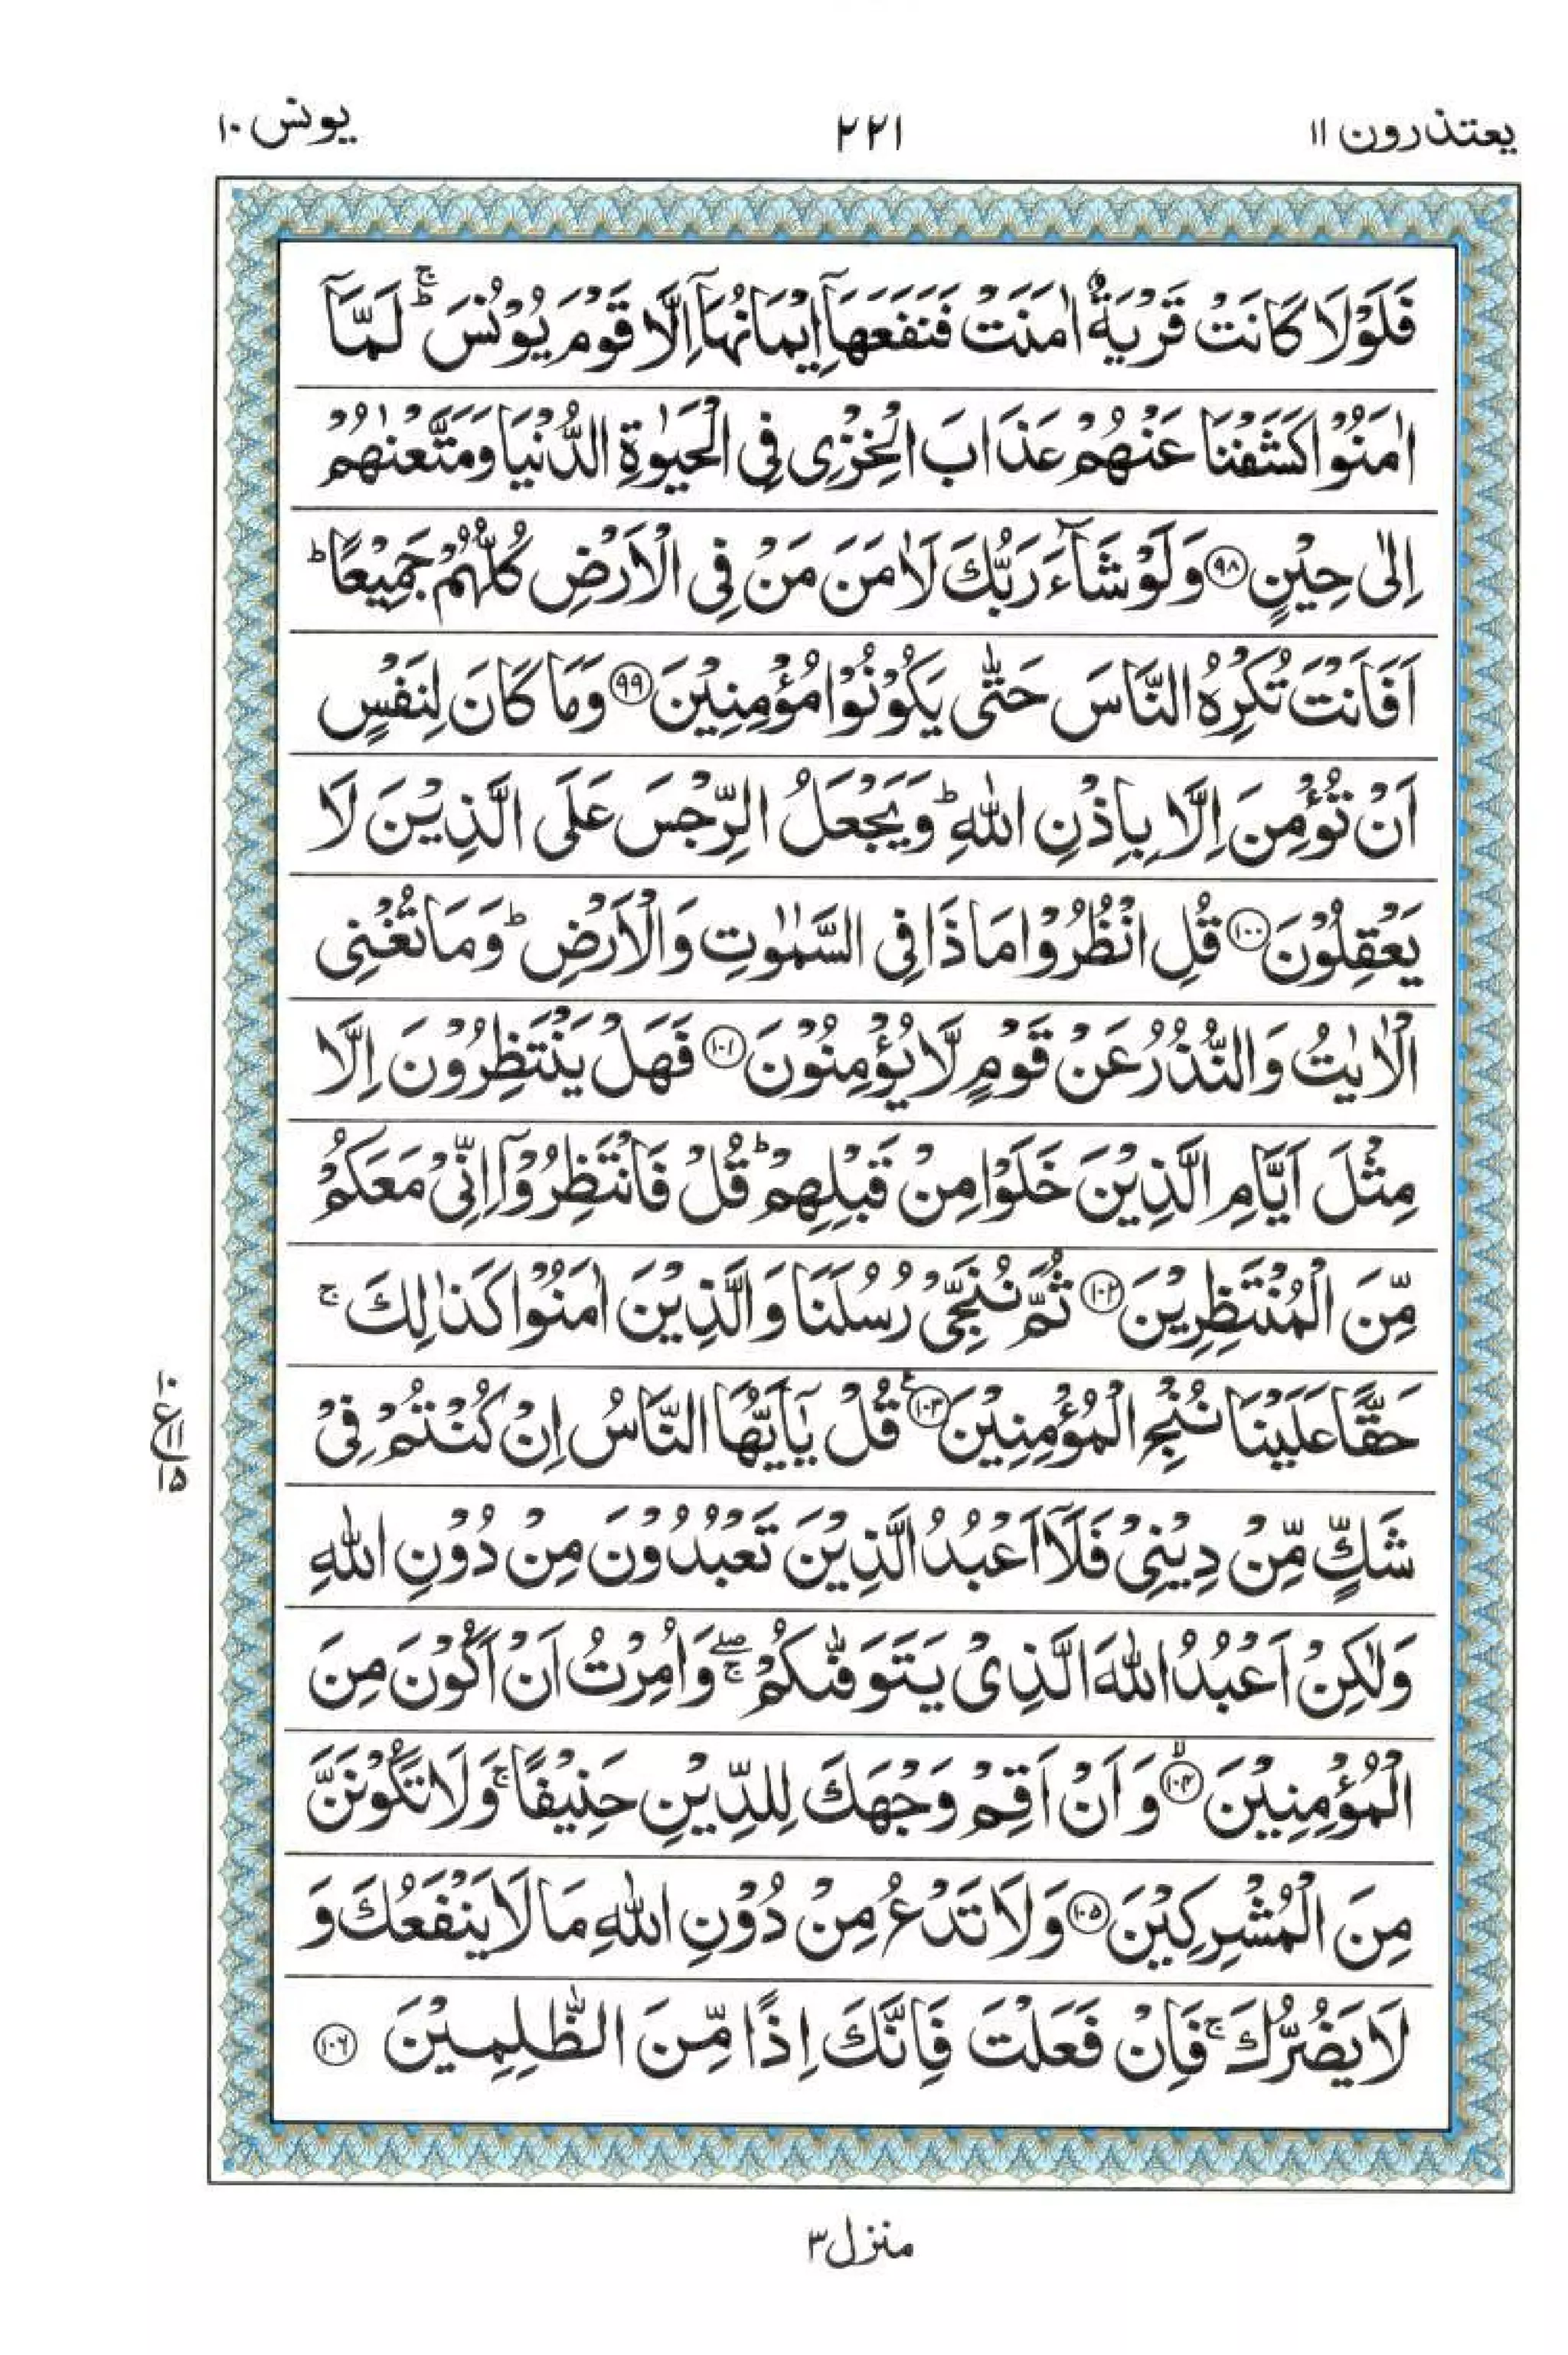 يعتذرون ١١
٢٢١
يونس ١٠
فَلَوْلَا كَانَتْ قَرْيَةٌ اٰمَنَتْ فَنَفَعَهَاۤ اِيْمَانُهَاۤ اِلَّا قَوْمَ يُوْنُسَ ؕۚ لَمَّاۤ
اٰمَنُوْا كَشَفْنَا عَنْهُمْ عَذَابَ الْخِزْيِ فِي الْحَيٰوةِ الدُّنْيَا وَمَتَّعْنٰهُمْ
اِلٰى حِيْنٍ ۹۸ وَلَوْ شَآءَ رَبُّكَ لَاٰمَنَ مَنْ فِي الْاَرْضِ كُلُّهُمْ جَمِيْعًا ؕ
اَفَاَنْتَ تُكْرِهُ النَّاسَ حَتّٰى يَكُوْنُوْا مُؤْمِنِيْنَ ۹۹ وَمَا كَانَ لِنَفْسٍ
اَنْ تُؤْمِنَ اِلَّا بِاِذْنِ اللّٰهِ ؕ وَيَجْعَلُ الرِّجْسَ عَلَى الَّذِيْنَ لَا
يَعْقِلُوْنَ ۱۰۰ قُلِ انْظُرُوْا مَاذَا فِي السَّمٰوٰتِ وَالْاَرْضِ ؕ وَمَا تُغْنِي
الْاٰيٰتُ وَالنُّذُرُ عَنْ قَوْمٍ لَّا يُؤْمِنُوْنَ ۱۰۱ فَهَلْ يَنْتَظِرُوْنَ اِلَّا
مِثْلَ اَيَّامِ الَّذِيْنَ خَلَوْا مِنْ قَبْلِهِمْ ؕ قُلْ فَانْتَظِرُوْۤا اِنِّيْ مَعَكُمْ
مِّنَ الْمُنْتَظِرِيْنَ ۱۰۲ ثُمَّ نُنَجِّيْ رُسُلَنَا وَالَّذِيْنَ اٰمَنُوْا كَذٰلِكَ ۚ
حَقًّا عَلَيْنَا نُنْجِ الْمُؤْمِنِيْنَ ۱۰۳ ع قُلْ يٰۤاَيُّهَا النَّاسُ اِنْ كُنْتُمْ فِيْ
۱۰
ع ۱۱
۱۵
شَكٍّ مِّنْ دِيْنِيْ فَلَاۤ اَعْبُدُ الَّذِيْنَ تَعْبُدُوْنَ مِنْ دُوْنِ اللّٰهِ
وَلٰكِنْ اَعْبُدُ اللّٰهَ الَّذِيْ يَتَوَفّٰىكُمْ ۖۚ وَاُمِرْتُ اَنْ اَكُوْنَ مِنَ
الْمُؤْمِنِيْنَ ۱۰۴ۙ وَاَنْ اَقِمْ وَجْهَكَ لِلدِّيْنِ حَنِيْفًا ۚ وَلَا تَكُوْنَنَّ
مِنَ الْمُشْرِكِيْنَ ۱۰۵ وَلَا تَدْعُ مِنْ دُوْنِ اللّٰهِ مَا لَا يَنْفَعُكَ وَ
لَا يَضُرُّكَ ۚ فَاِنْ فَعَلْتَ فَاِنَّكَ اِذًا مِّنَ الظّٰلِمِيْنَ ۱۰۶
منزل ۳